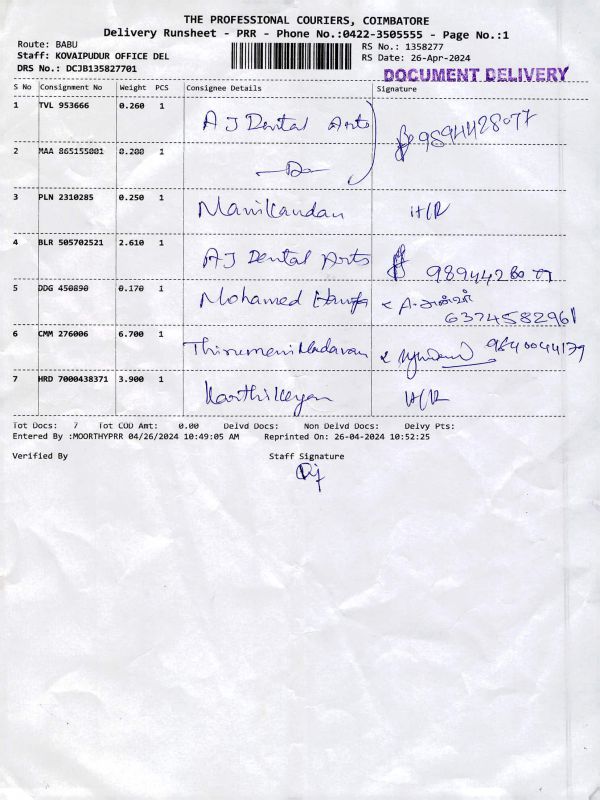 THE PROFESSIONAL COURIERS, COIMBATORE
Delivery Runsheet - PRR - Phone No.:0422-3505555 - Page No.:1
Route: BABU
Staff: KOVAIPUDUR OFFICE DEL
DRS No.: DCJB135827701
RS No.: 1358277
RS Date: 26-Apr-2024
DOCUMENT DELIVERY
S No Consignment No Weight PCS Consignee Details Signature
1 TVL 953666 0.260 1 A J Dental Arts 9894428077
2 MAA 865155001 0.200 1
3 PLN 2310285 0.250 1 Manikandan H/R
4 BLR 505702521 2.610 1 A J Dental Arts 9894428077
5 DDG 450890 0.170 1 Mohamed
6374582961
6 CMM 276006 6.700 1 9840044179
7 HRD 7000438371 3.900 1 Karthikeyan H/R
Tot Docs: 7 Tot COD Amt: 0.00 Delvd Docs: Non Delvd Docs: Delvy Pts:
Entered By :MOORTHYPRR 04/26/2024 10:49:05 AM Reprinted On: 26-04-2024 10:52:25
Verified By Staff Signature